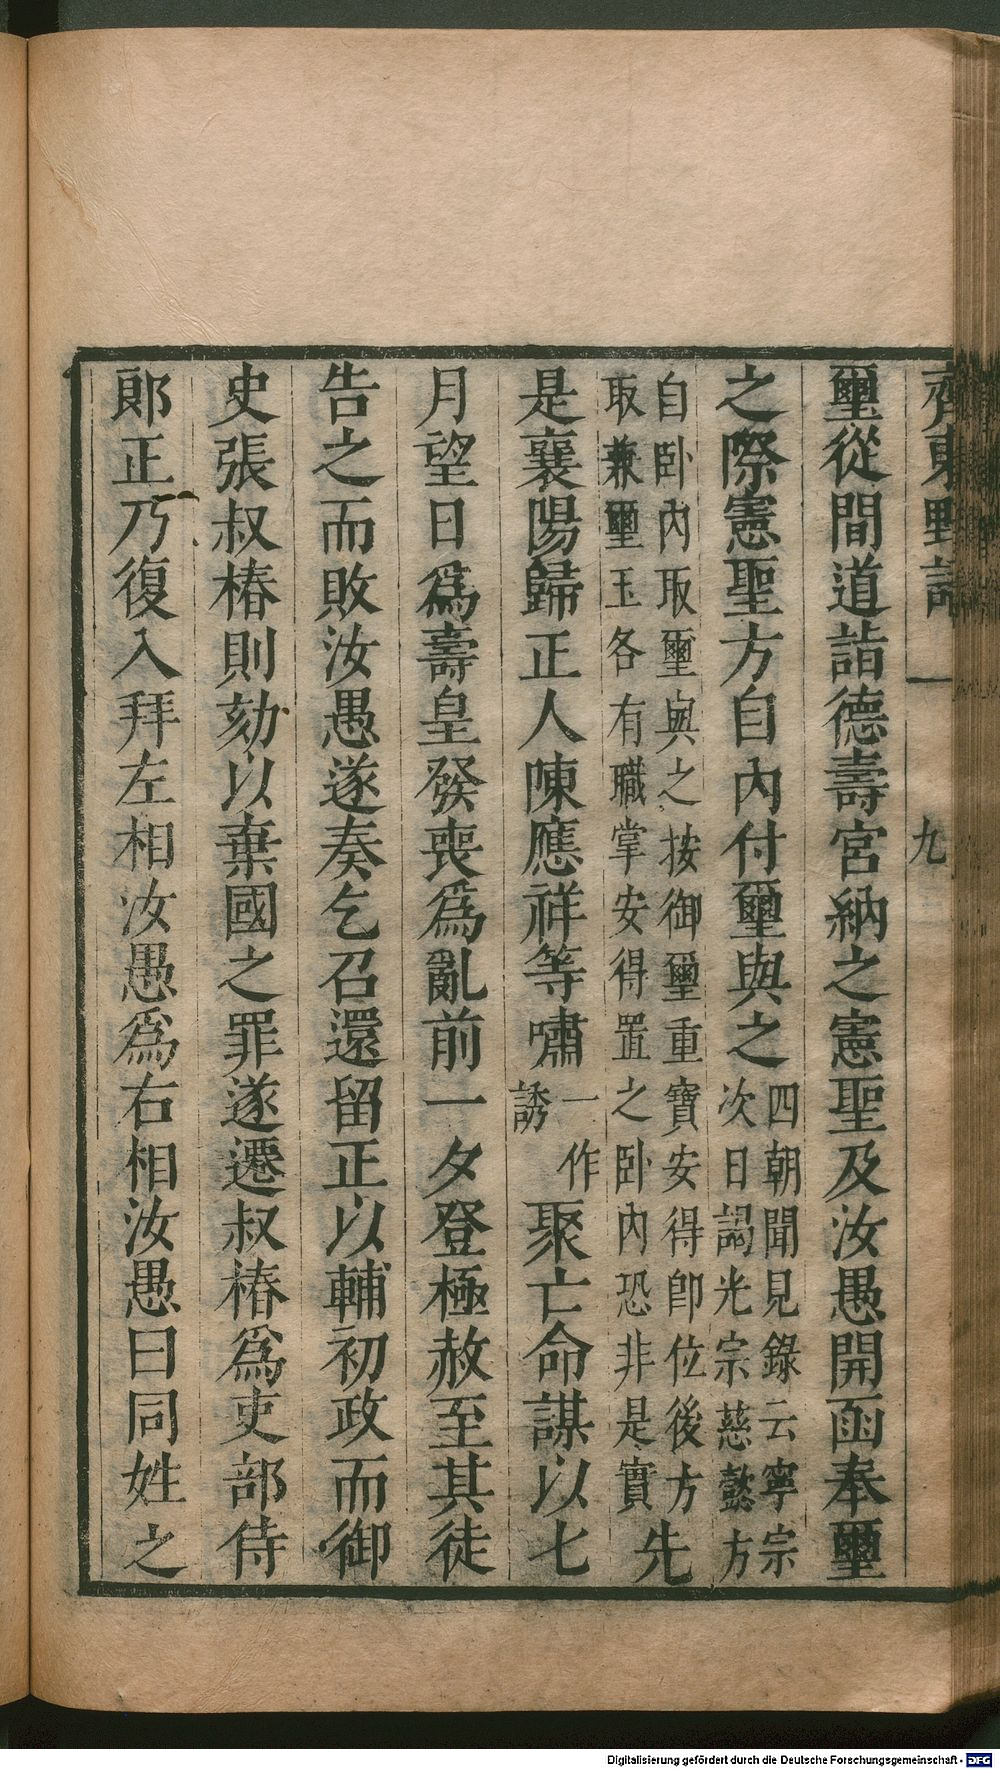 齊東野語 一 九
璽從間道詣德壽宮納之憲聖及汝愚開函奉璽
之際憲聖方自內付璽與之
四朝聞見錄云寧宗
次日謁光宗慈懿方
自卧內取璽與之按御璽重寶安得卽位後方
取兼璽玉各有職掌安得置之卧內恐非是實
先
是襄陽歸正人陳應祥等嘯
一作
誘
聚亡命謀以七
月望日爲壽皇發喪爲亂前一夕登極赦至其徒
告之而敗汝愚遂奏乞召還留正以輔初政而御
史張叔椿則劾以棄國之罪遂遷叔椿爲吏部侍
郎正乃復入拜左相汝愚爲右相汝愚曰同姓之
Digitalisierung gefördert durch die Deutsche Forschungsgemeinschaft - DFG